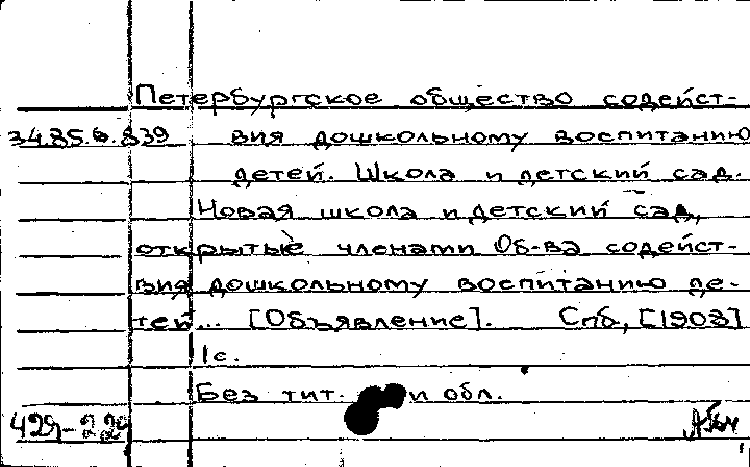 Петербургское общество содейст-
34.85.6.839 вия дошкольному воспитанию
детей. Школа и детский сад.
Новая школа и детский сад,
открытые членами Об-ва содейст-
вия дошкольному воспитанию де-
тей... [Объявление]. Спб, [1908]
1 с.
Без тит. и обл.
429-229